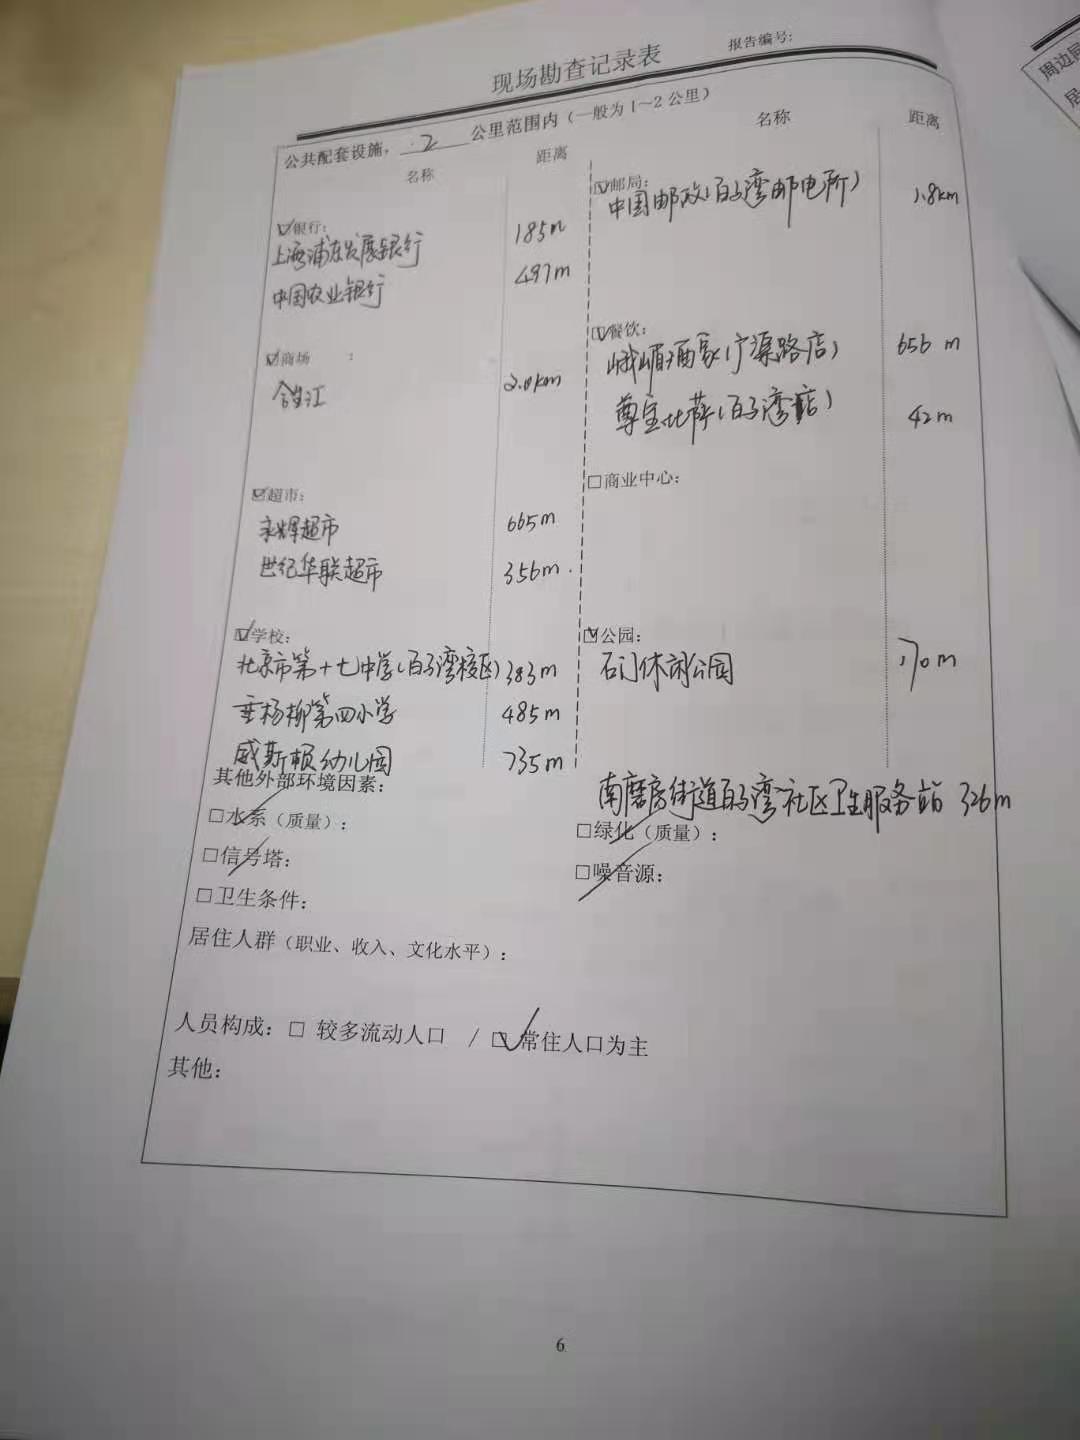 现场勘查记录表
报告编号:
公共配套设施,2公里范围内(一般为1~2公里)
名称 距离 名称 距离
☑银行:
上海浦东发展银行 185m
中国农业银行 497m
☑邮局:
中国邮政(百子湾邮电所) 1.8km
☑商场 :
合生汇 2.0km
☑餐饮:
峨嵋酒家(广渠路店) 656m
尊宝比萨(百子湾店) 42m
☑超市:
永辉超市 665m
世纪华联超市 356m
□商业中心:
☑学校:
北京市第十七中学(百子湾校区) 383m
垂杨柳第四小学 485m
威斯顿幼儿园 735m
☑公园:
石门休闲公园
南磨房街道百子湾社区卫生服务站 326m
其他外部环境因素:
□水系(质量):
□绿化(质量):
□信号塔:
□噪音源:
□卫生条件:
居住人群(职业、收入、文化水平):
人员构成:□ 较多流动人口 / ☑常住人口为主
其他:
6
周边居
居